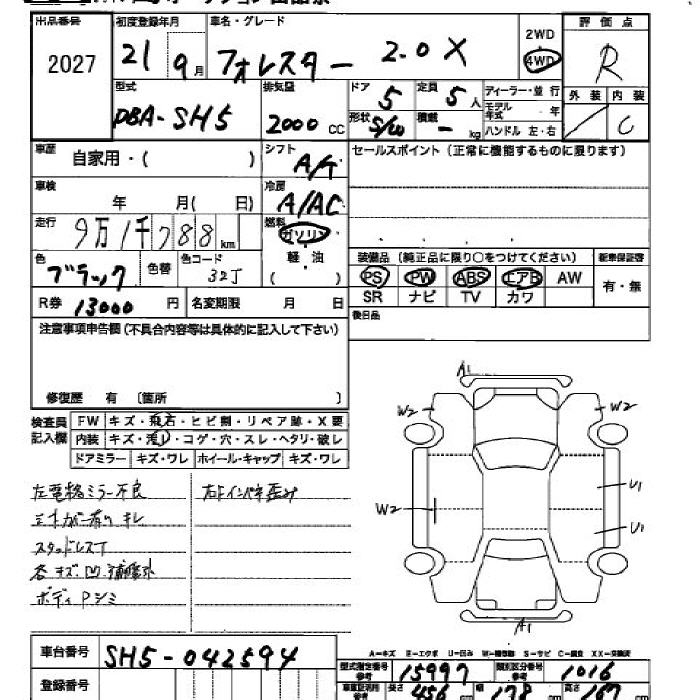 出品番号 初度登録年月 車名・グレード 2WD 評価点
2027 21 9月 フォレスター 2.0X 4WD R
型式 排気量 ドア 5 定員 5人 ディーラー・並行 外装 内装
DBA-SH5 2000 CC 形状 S/W 積載 - kg モデル年式 ・ 年 C
ハンドル 左・右
車歴 自家用・( ) シフト A/T セールスポイント(正常に機能するものに限ります)
車検 年 月( 日) 冷房 A/AC
走行 9万1千788km 燃料 ガソリン
色 ブラック 色替 色コード 32J 軽油 ( ) 装備品(純正品に限り○をつけてください) 新車保証書
PS PW ABS エアB AW 有・無
R券 13000円 名変期限 月 日 SR ナビ TV カワ
注意事項申告欄(不具合内容等は具体的に記入して下さい) 後日品
修復歴 有 〔箇所 〕
検査員記入欄 FW キズ・飛石・ヒビ割・リペア跡・X要
内装 キズ・汚レ・コゲ・穴・スレ・ヘタリ・破レ
ドアミラー キズ・ワレ ホイール・キャップ キズ・ワレ
A1
W2 W2
W2 U1
U1
A1
左電格ミラー不良
スタッドレスT
各キズ凹補修跡
ボディPシミ
A-キズ E-エクボ U-凹み W-補修跡 S-サビ C-腐食 XX-交換済
車台番号 SH5-042594 型式指定番号 15997 類別区分番号 1016
登録番号 長さ 456 幅 178 高さ 167